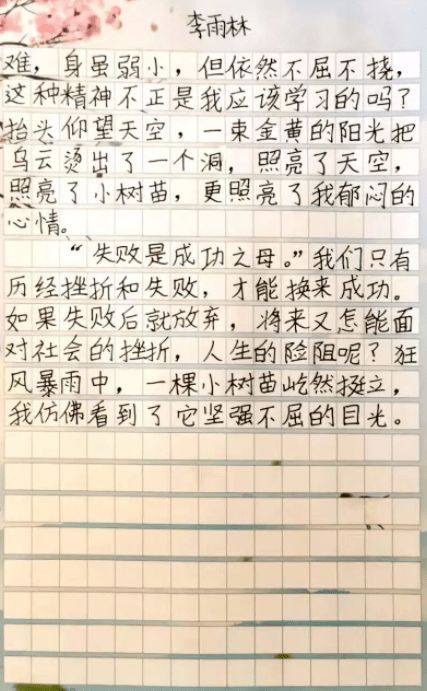 李雨林
难，身虽弱小，但依然不屈不挠，
这种精神不正是我应该学习的吗？
抬头仰望天空，一束金黄的阳光把
乌云烫出了一个洞，照亮了天空，
照亮了小树苗，更照亮了我郁闷的
心情。
“失败是成功之母。”我们只有
历经挫折和失败，才能换来成功。
如果失败后就放弃，将来又怎能面
对社会的挫折，人生的险阻呢？狂
风暴雨中，一棵小树苗屹然挺立，
我仿佛看到了它坚强不屈的目光。